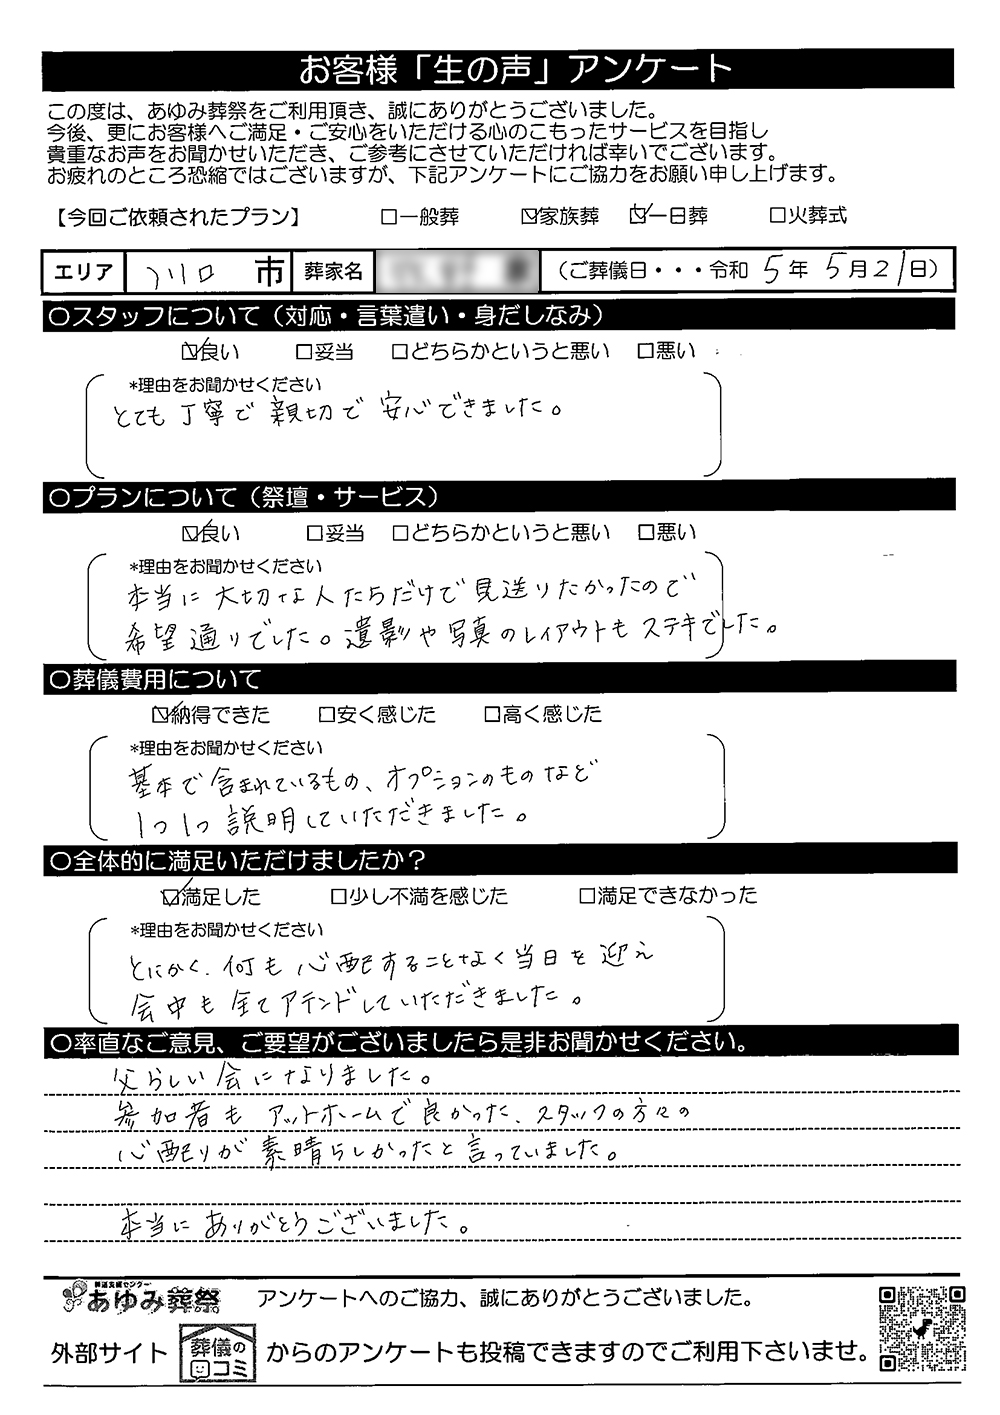 お客様「生の声」アンケート
この度は、あゆみ葬祭をご利用頂き、誠にありがとうございました。
今後、更にお客様へご満足・ご安心をいただける心のこもったサービスを目指し
貴重なお声をお聞かせいただき、ご参考にさせていただければ幸いでございます。
お疲れのところ恐縮ではございますが、下記アンケートにご協力をお願い申し上げます。
【今回ご依頼されたプラン】 □一般葬 ☑家族葬 ☑一日葬 □火葬式
エリア 川口 市 葬家名 （ご葬儀日・・・令和 5年 5月21日）
○スタッフについて（対応・言葉遣い・身だしなみ）
☑良い □妥当 □どちらかというと悪い □悪い
*理由をお聞かせください
とても丁寧で親切で安心できました。
○プランについて（祭壇・サービス）
☑良い □妥当 □どちらかというと悪い □悪い
*理由をお聞かせください
本当に大切な人たちだけで見送りたかったので
希望通りでした。遺影や写真のレイアウトもステキでした。
○葬儀費用について
☑納得できた □安く感じた □高く感じた
*理由をお聞かせください
基本で含まれているもの、オプションのものなど
1つ1つ説明していただきました。
○全体的に満足いただけましたか？
☑満足した □少し不満を感じた □満足できなかった
*理由をお聞かせください
とにかく、何も心配することなく当日を迎え
会中も全てアテンドしていただきました。
○率直なご意見、ご要望がございましたら是非お聞かせください。
父らしい会になりました。
参加者もアットホームで良かった、スタッフの方々の
心配りが素晴らしかったと言っていました。
本当にありがとうございました。
葬送支援センター
あゆみ葬祭 アンケートへのご協力、誠にありがとうございました。
外部サイト 葬儀の口コミ からのアンケートも投稿できますのでご利用下さいませ。